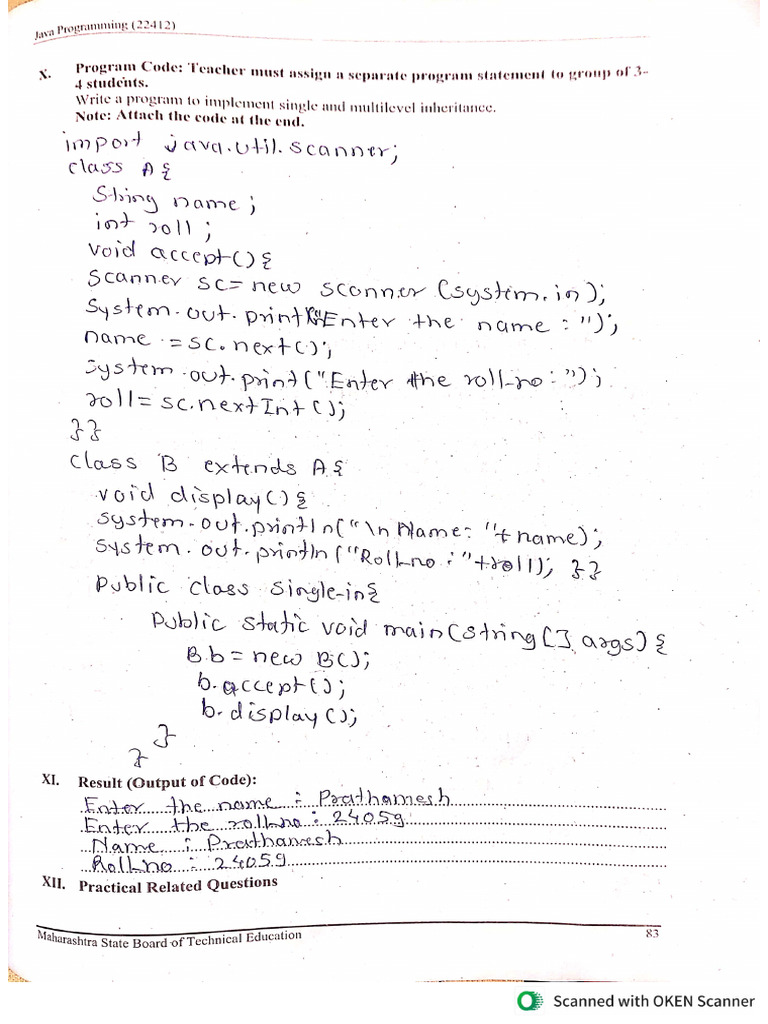 Java Programming (22412)
X. Program Code: Teacher must assign a separate program statement to group of 3-
4 students.
Write a program to implement single and multilevel inheritance.
Note: Attach the code at the end.
import java.util.scanner;
class A{
String name;
int roll;
void accept(){
Scanner sc=new scanner (system.in);
System.out.print("Enter the name : ");
name =sc.next();
system.out.print("Enter the roll-no: ");
roll= sc.nextInt();
}}
class B extends A{
void display(){
system.out.println("\n Name: "+name);
system.out.println("Roll-no : "+roll); }}
public class Single-in{
public static void main(String[] args) {
B b = new B();
b.accept();
b.display();
}
}
XI. Result (Output of Code):
Enter the name : Prathamesh
Enter the rollno : 24059
Name : Prathamesh
Roll-no : 24059
XII. Practical Related Questions
Maharashtra State Board of Technical Education 83
Scanned with OKEN Scanner